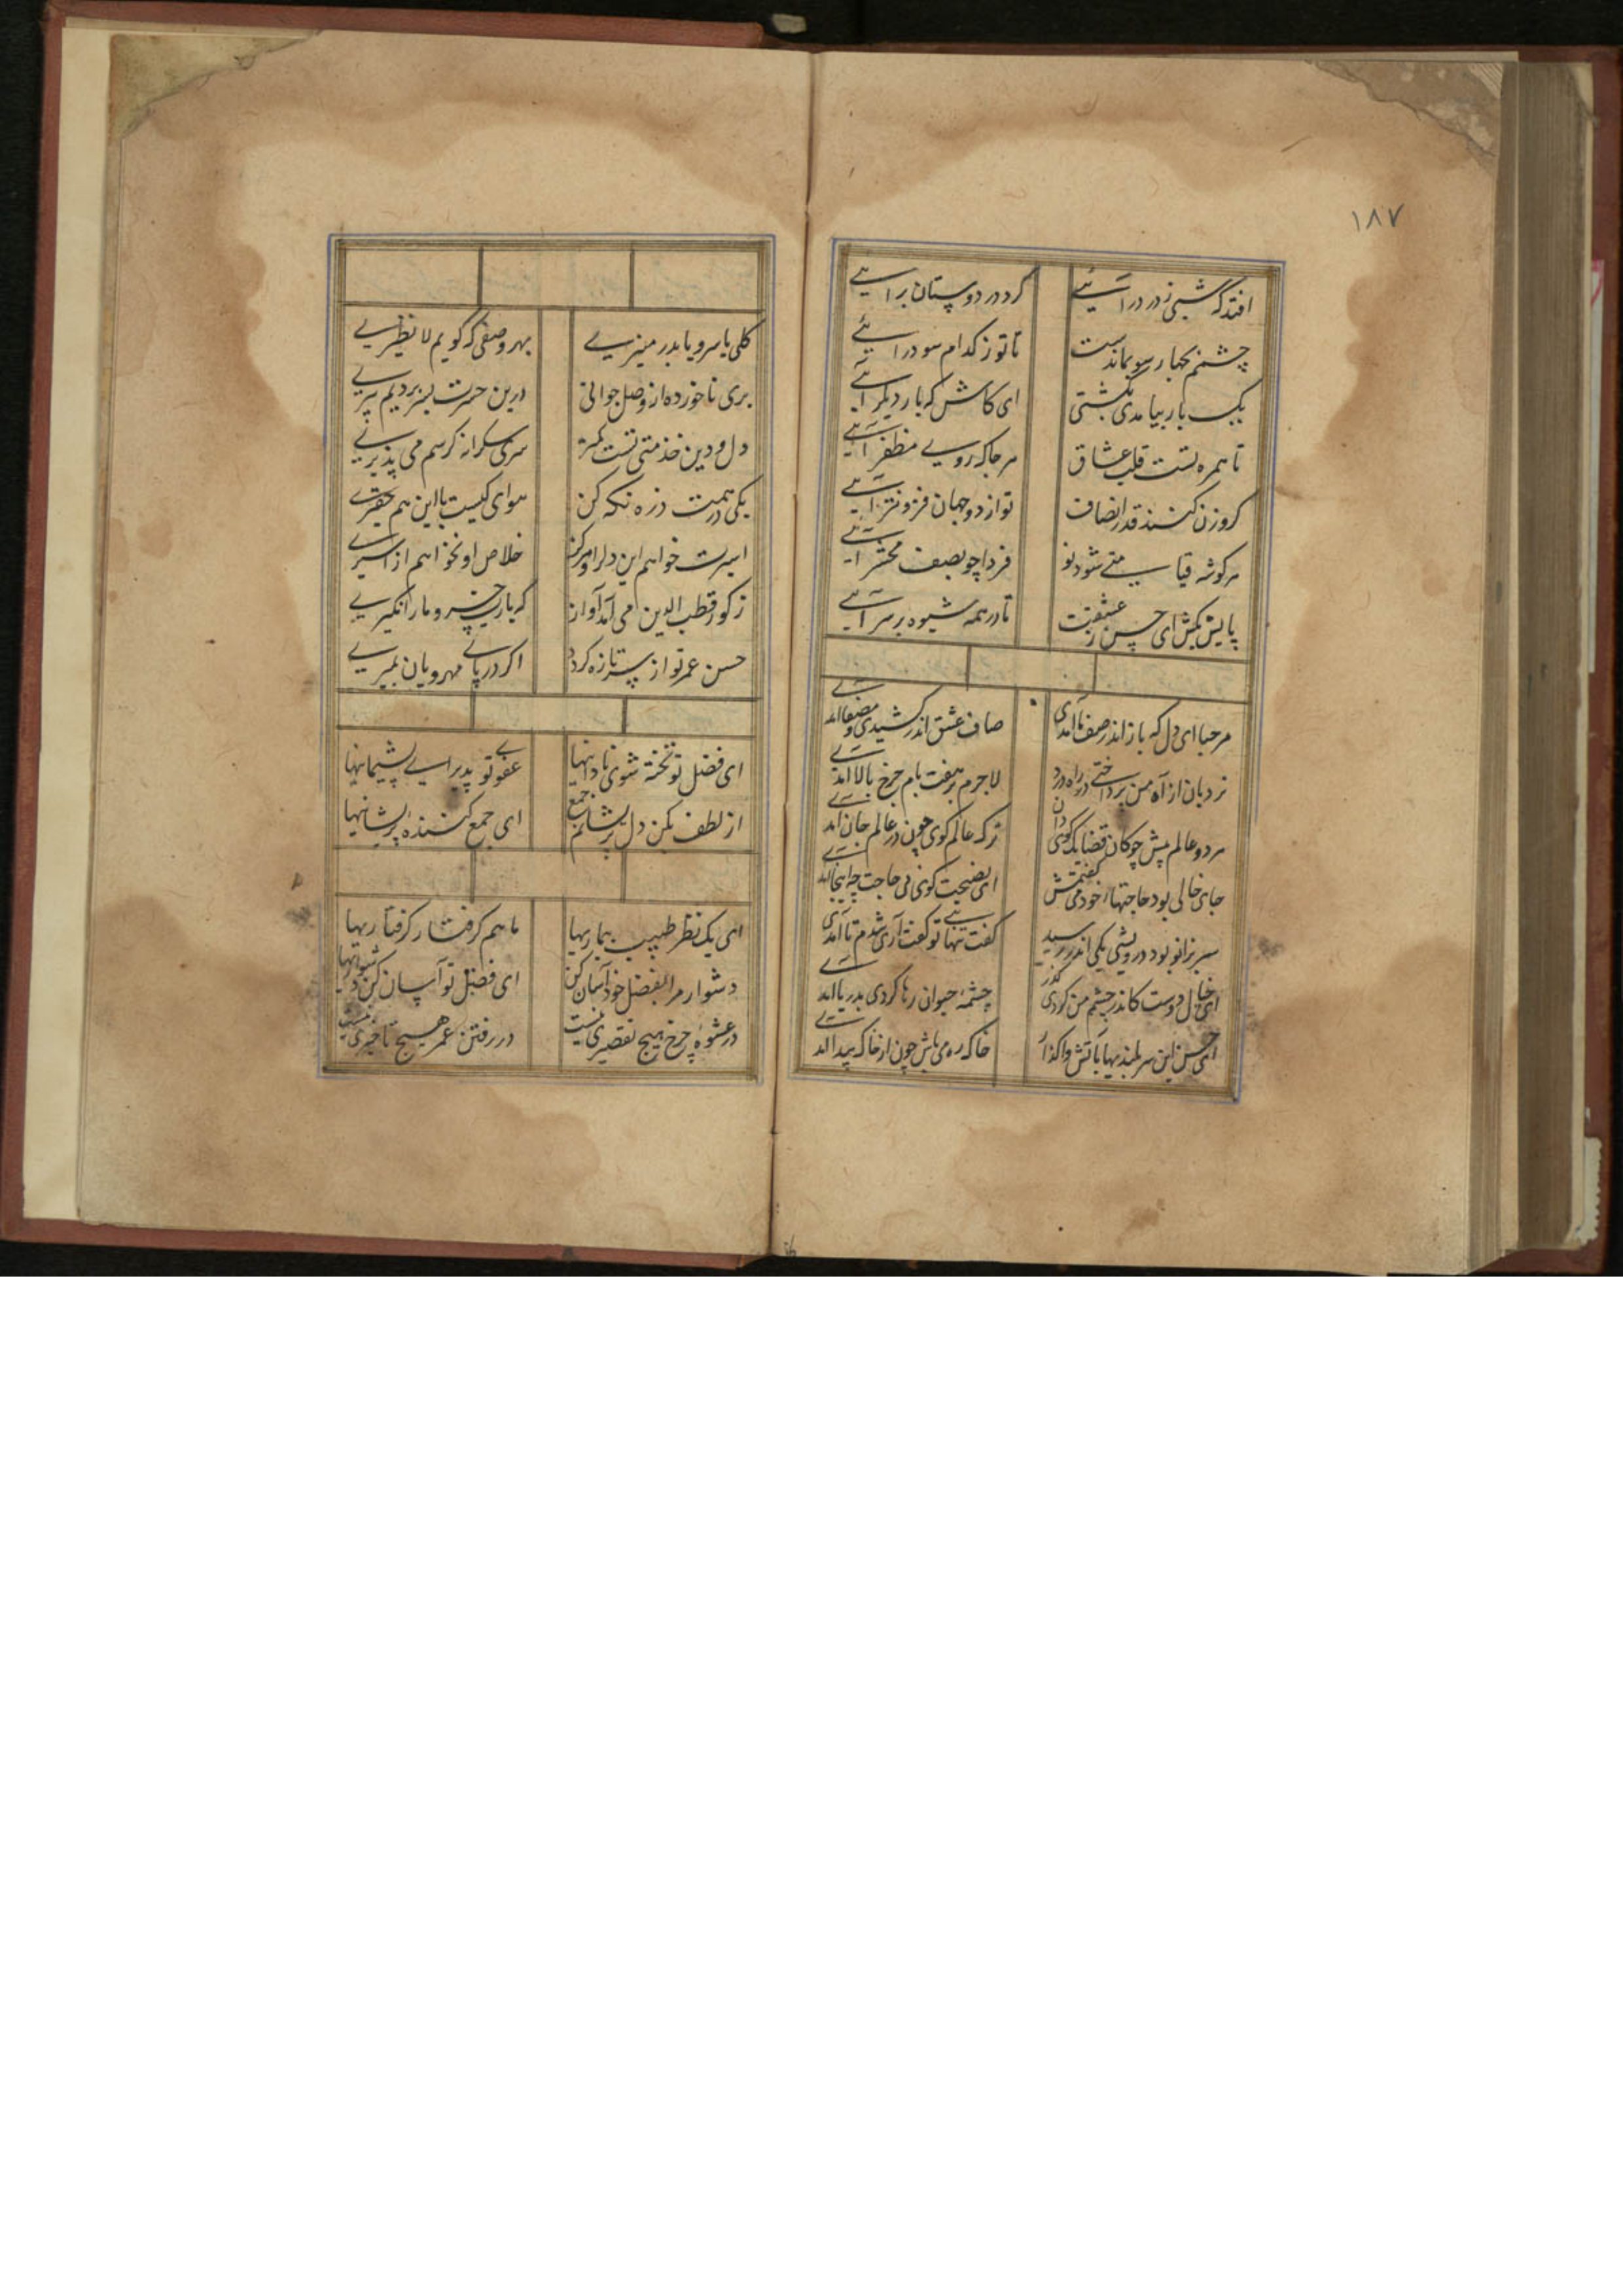 ۱۸۷
افتد که شبی ز در درآیی گرد در دوستان برآیی
چشمم بچهار سو بماندست تا تو ز کدام سو درآیی
یک بار بیامدی بکشتی ای کاش که بار دیگر آیی
تا همره تست قلب عشاق هر جا که روی مظفر آیی
کر وزن کنند قدر انصاف تو از دو جهان فزونتر آیی
هر کوشه قیامتی شود نو فردا چو بصف محشر آیی
پایش بکش ای حسن تا در همه شیوه بر سر آیی
مرحبا ای دل که باز اندر صف ما آمدی صاف عشق اندر کشیدی و مصفا آمدی
نردبان از آه من پرداختی در راه درد لاجرم بر هفت بام چرخ بالا آمدی
هر دو عالم پیش چوکان قضا یک کوی دان ترک عالم کوی چون در عالم جان آمدی
جای خالی بود حاجتها خود می کفتمش ای نصیحت کوی بی حاجت چه اینجا آمدی
سر بزانو بود درویشی یکی اندر رسید کفت تنهایی تو کفت آری شدم تا آمدی
ای خیال دوست کاندر چشم من کردی کذر چشمهٔ حیوان رها کردی بدریا آمدی
ای حسن این سر بلندیها بآتش واکذار خاک ره می باش چون از خاک پیدا آمدی
کلی یا سرو یا بدر منیری بهر وصفی که کویم لا نظیری
بری ناخورده از وصل جوانی درین حسرت بسر بردیم پیری
دل و دین خذمتی تست کمتر سری شکرانه کر سم می پذیری
یکی در همت ذره نکه کن هوای کیست با این هم حقیری
اسیرت خواهم این دل را و هرکز خلاص او نخواهم از اسیری
ز کور قطب الدین می آمد آواز که یا رب خسرو ما را نکیری
حسن عمر تو از سر تازه کردد اکر در پای مهرویان بمیری
ای فضل تو تخته شوی نادانیها عفو تو پذیرای پشیمانیها
از لطف بکن دل پریشانم جمع ای جمع کنندهٔ پریشانیها
ای یک نظر طبیب بیماریها ما هم کرفتار کرفتاریها
دشوار مرا بفضل خود آسان کن ای فضل تو آسان کن دشواریها
در عشوهٔ چرخ هیچ تقصیری نیست در رفتن عمر هیچ تاخیری نیست